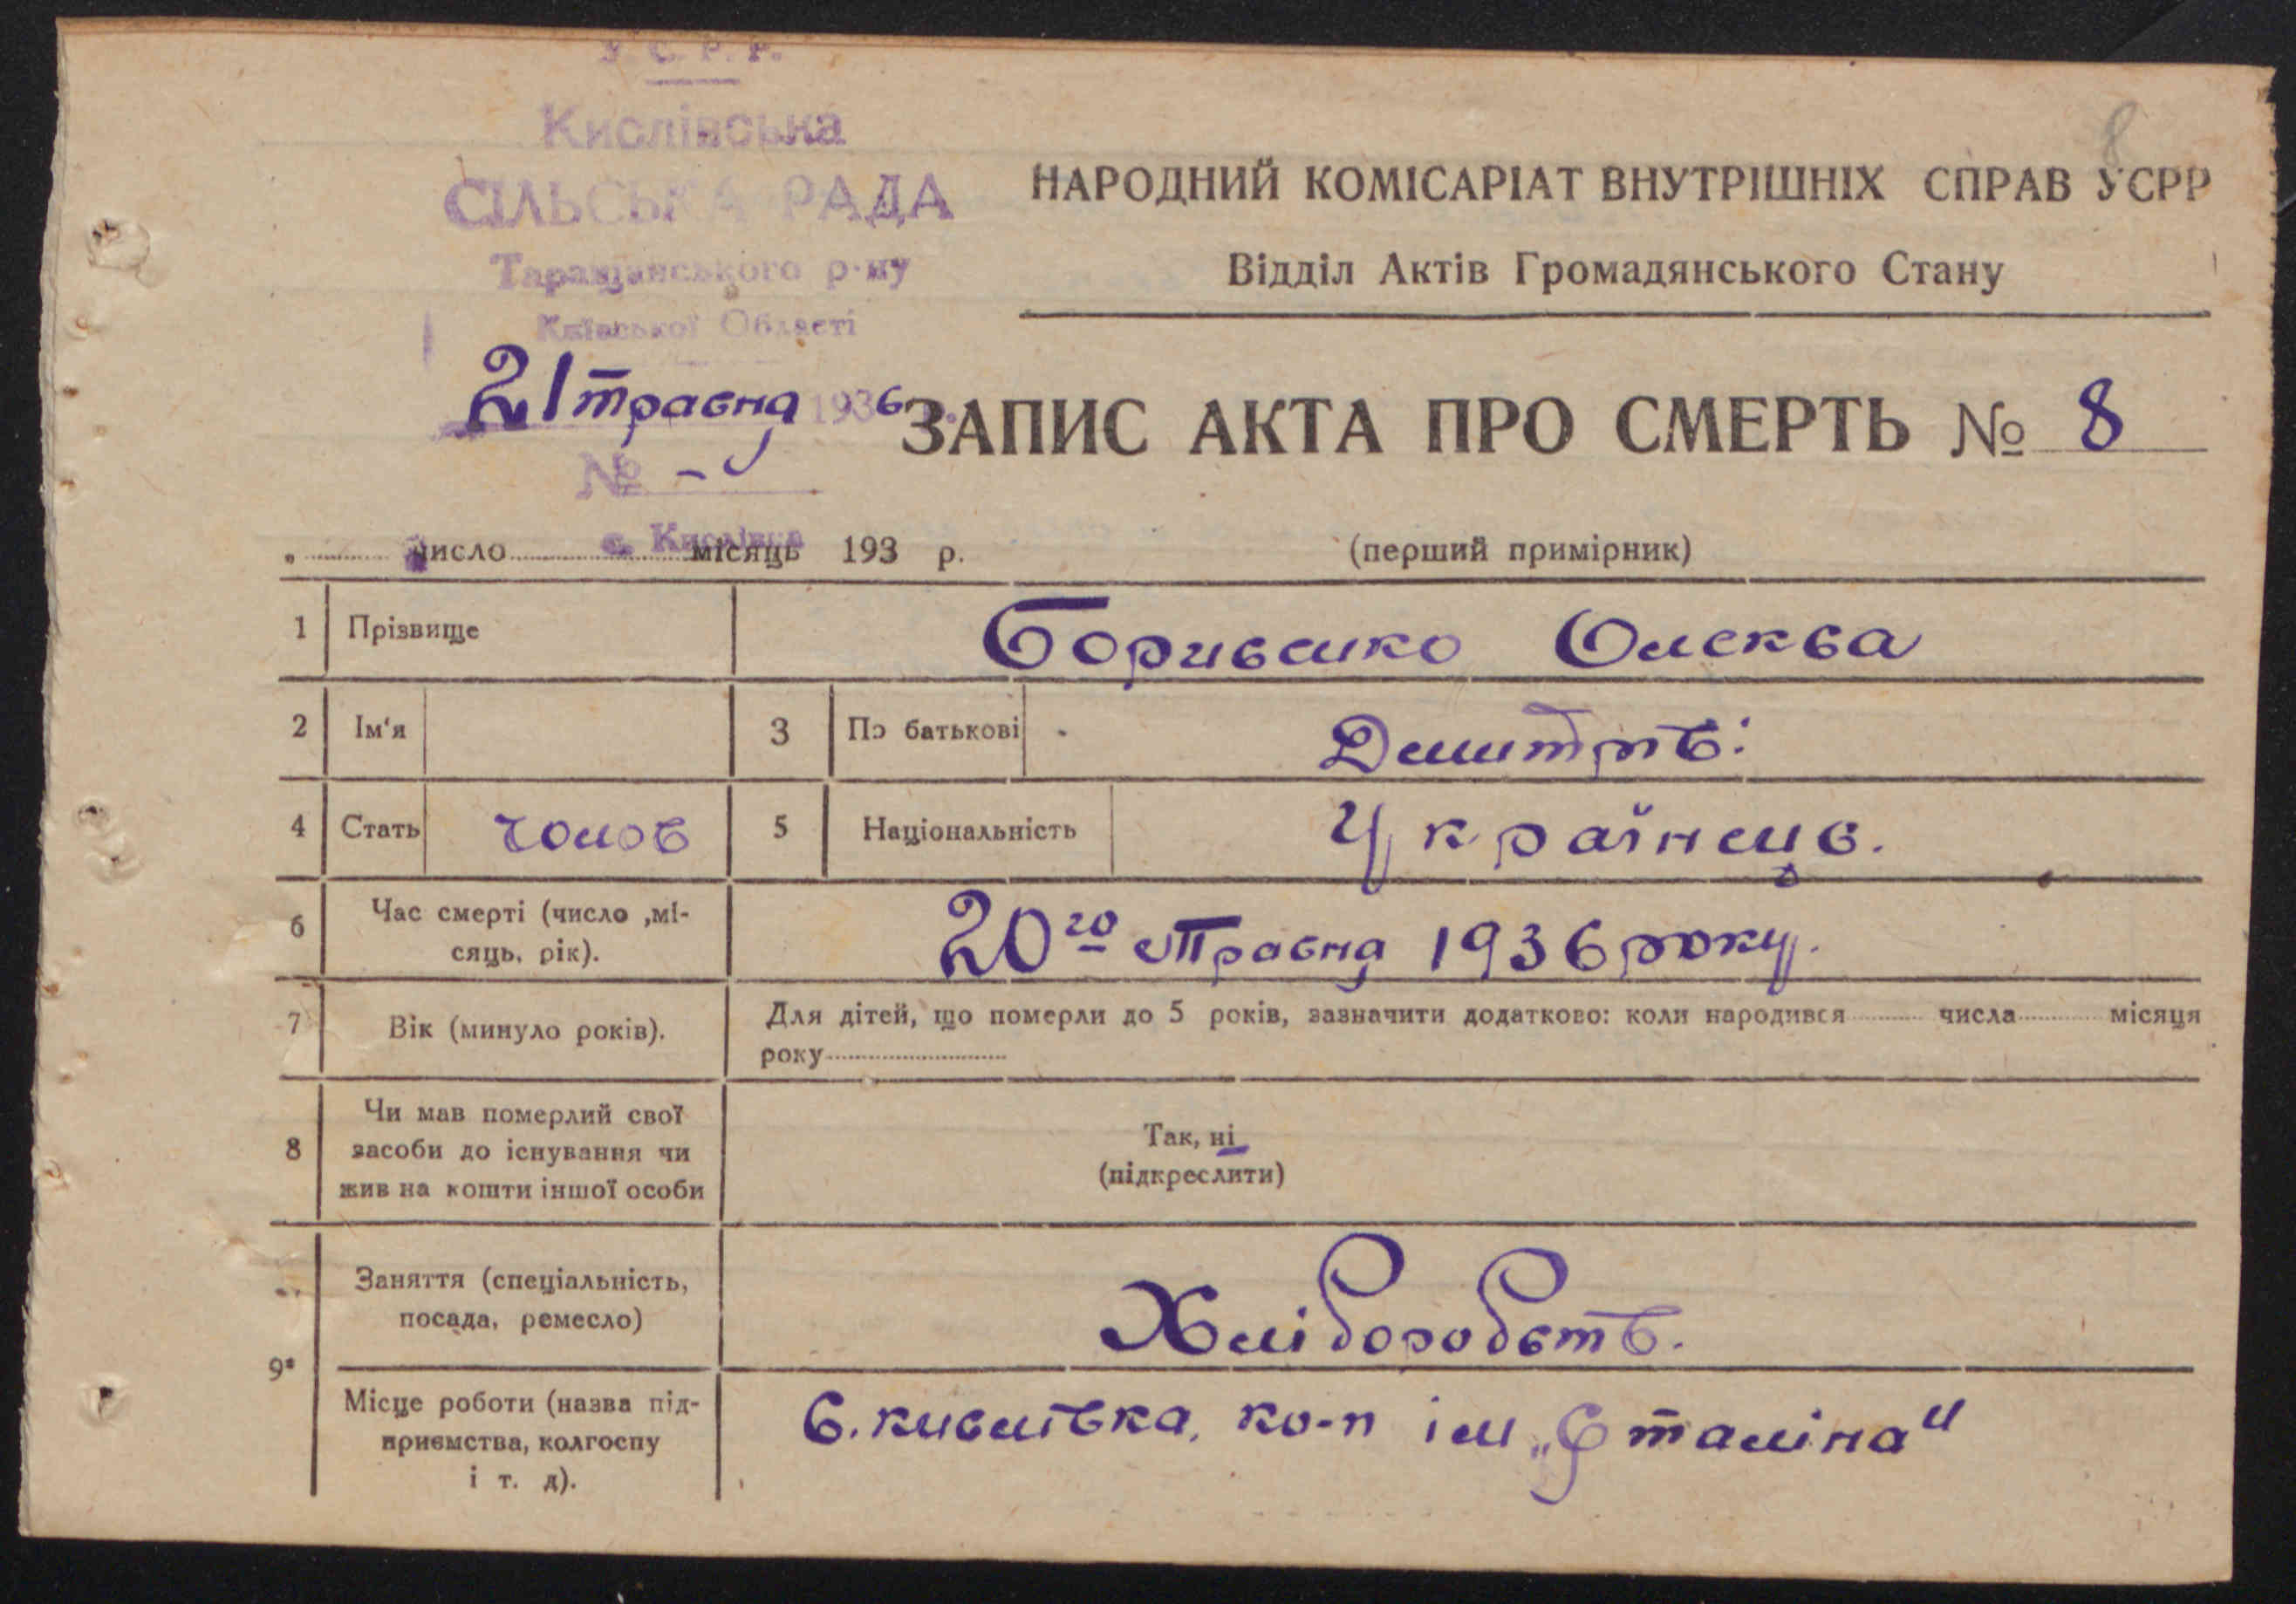 У. С. Р. Р.
Кислівська
СІЛЬСЬКА РАДА
Таращанського р-ну
Київської Області
8
НАРОДНИЙ КОМІСАРІАТ ВНУТРІШНІХ СПРАВ УСРР
Відділ Актів Громадянського Стану
21 травня 1936
ЗАПИС АКТА ПРО СМЕРТЬ № 8
№ -
с. Кислівка
„ число місяць 193 р.
(перший примірник)
1 Прізвище Олексва
2 Ім'я 3 По батькові Дмитрів:
4 Стать чолов 5 Національність Українець.
6 Час смерті (число ,мі-
сяць, рік).
20го Травня 1936 року.
7 Вік (минуло років).
Для дітей, що померли до 5 років, зазначити додатково: коли народився числа місяця
року
8 Чи мав померлий свої
засоби до існування чи
жив на кошти іншої особи
Так, ні
(підкреслити)
9 Заняття (спеціальність,
посада, ремесло)
Хліборобств.
Місце роботи (назва під-
приємства, колгоспу
і т. д).
С. кислівка, ко-п ім „Сталіна"